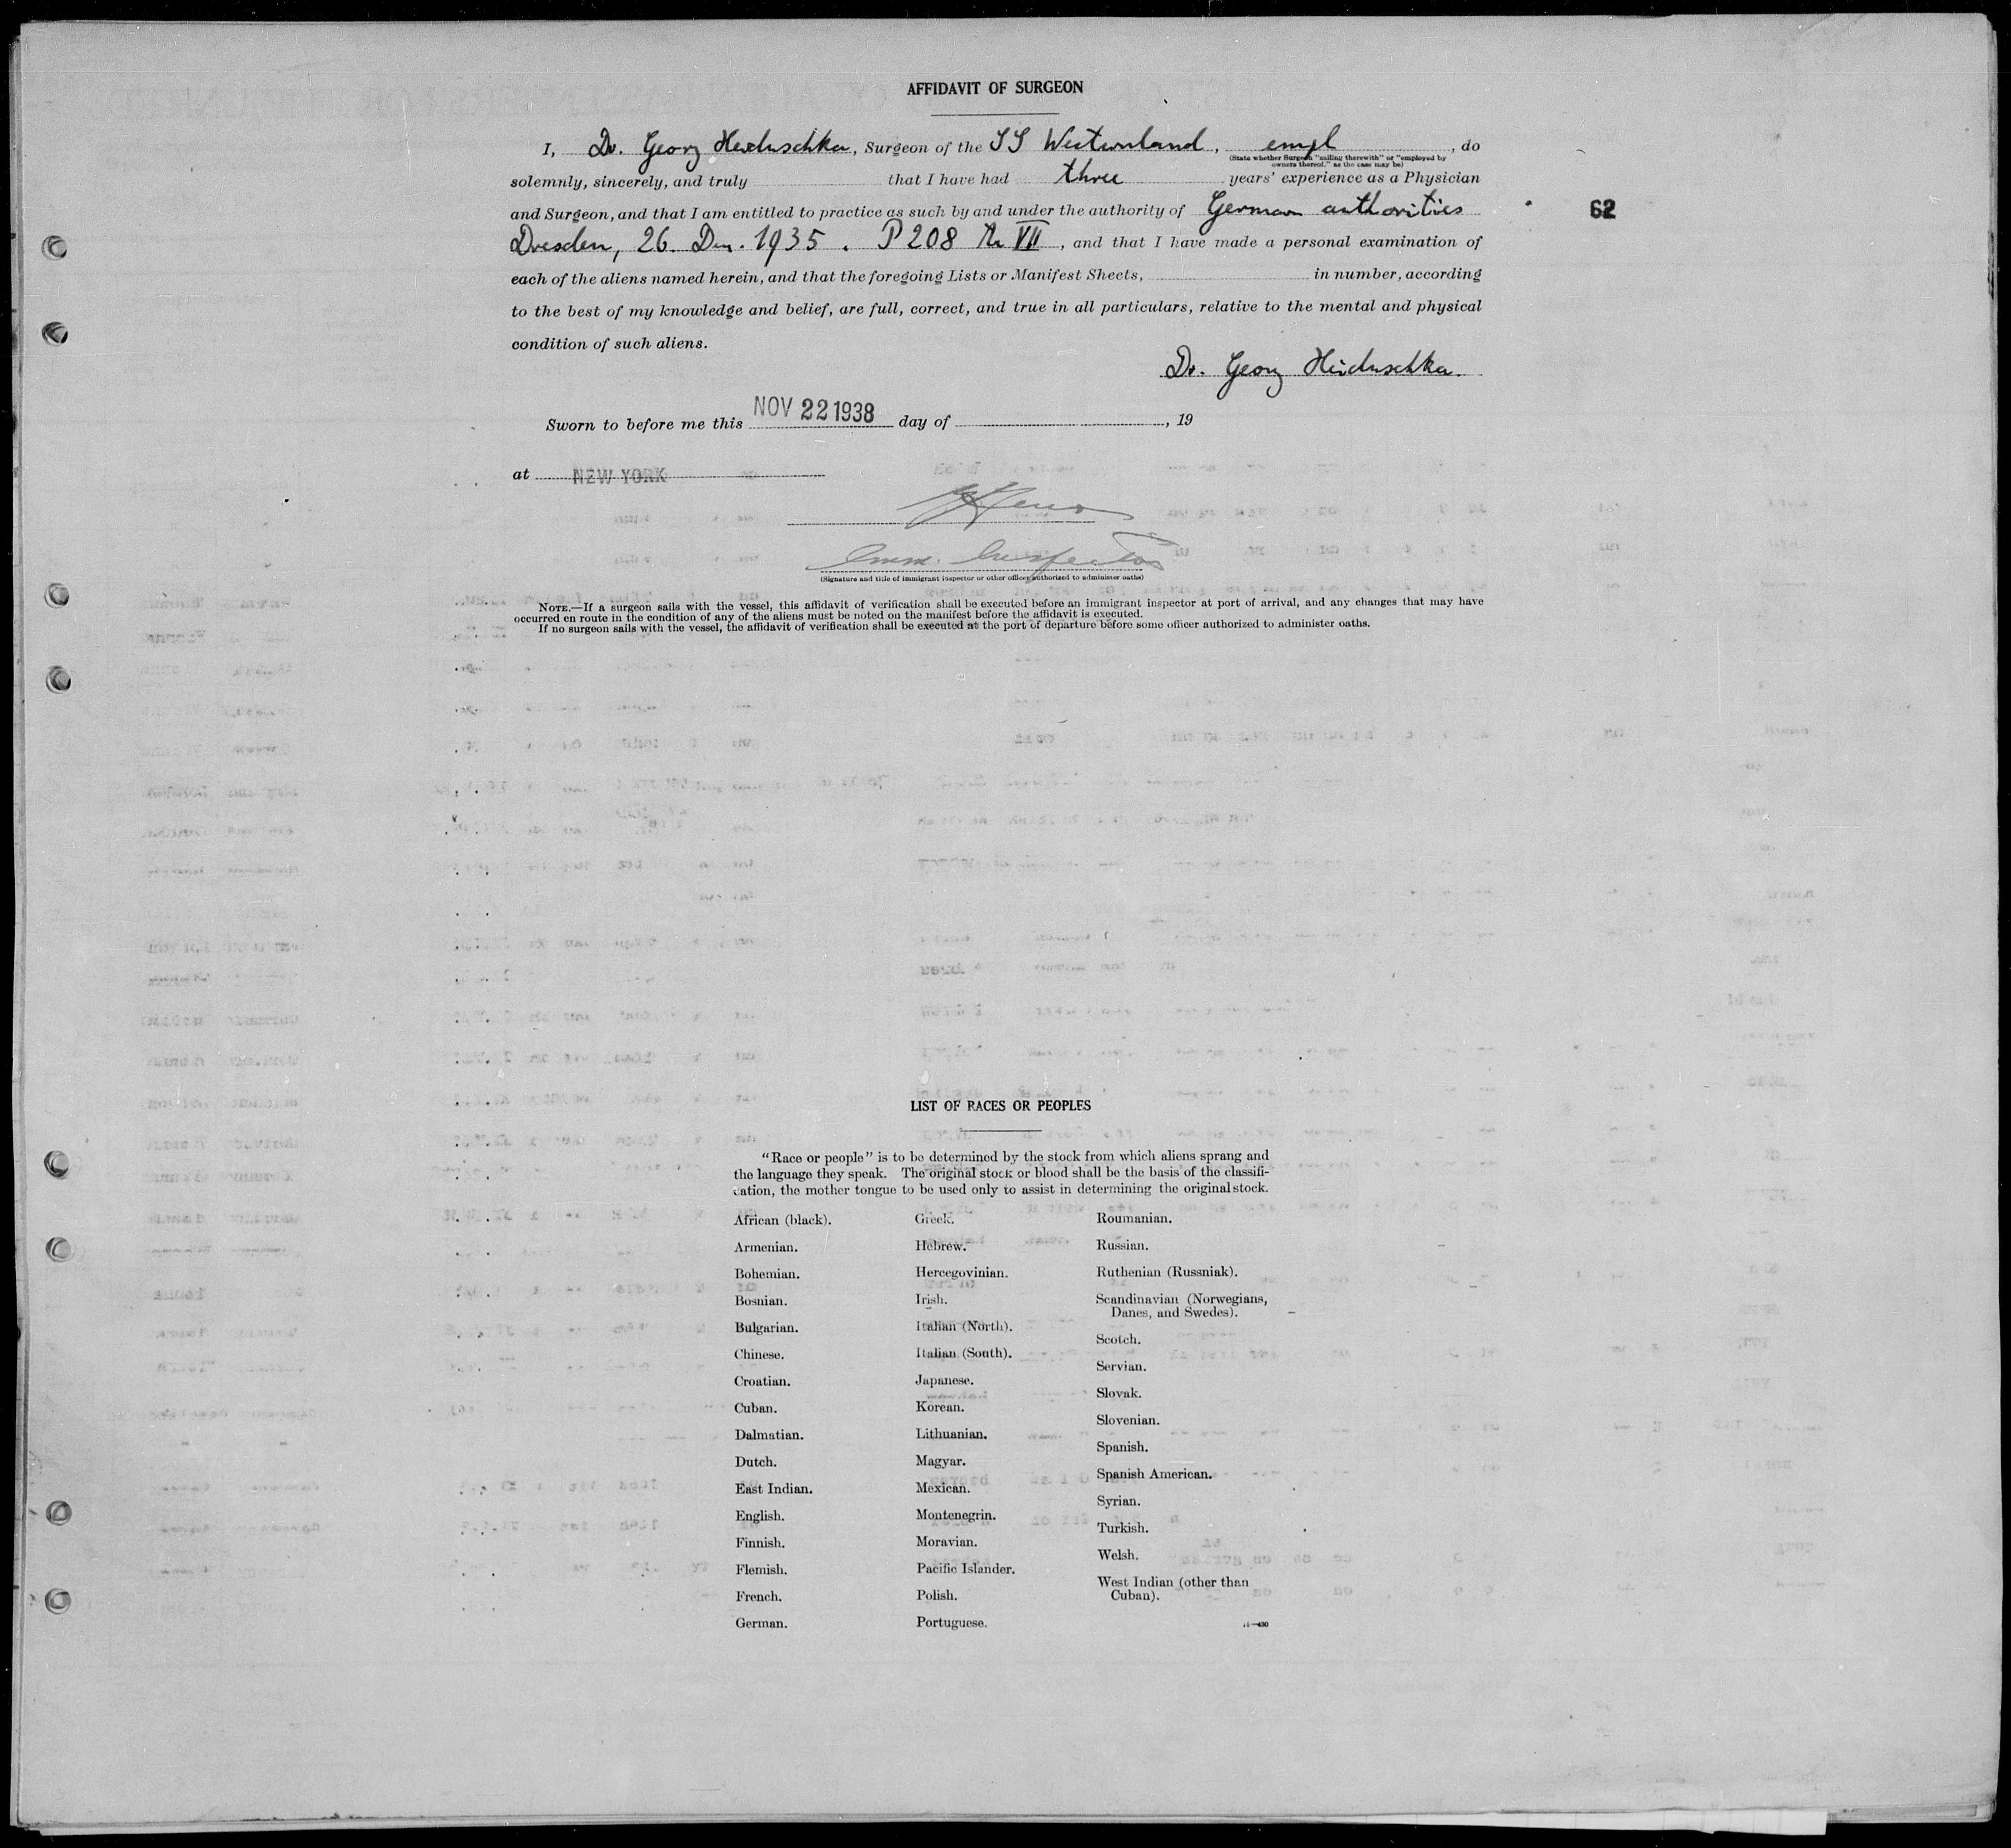 AFFIDAVIT OF SURGEON
I, Dr. Georg Heiduschka, Surgeon of the SS Westernland, empl, do
(State whether Surgeon "sailing therewith" or "employed by
owners thereof," as the case may be)
solemnly, sincerely, and truly that I have had three years' experience as a Physician
and Surgeon, and that I am entitled to practice as such by and under the authority of German authorities
62
Dresden, 26. Dez. 1935. P 208 VII, and that I have made a personal examination of
each of the aliens named herein, and that the foregoing Lists or Manifest Sheets, in number, according
to the best of my knowledge and belief, are full, correct, and true in all particulars, relative to the mental and physical
condition of such aliens.
Dr. Georg Heiduschka.
Sworn to before me this NOV 22 1938 day of , 19
at NEW YORK
Imm. Inspector
(Signature and title of immigrant inspector or other officer authorized to administer oaths)
NOTE.—If a surgeon sails with the vessel, this affidavit of verification shall be executed before an immigrant inspector at port of arrival, and any changes that may have
occurred en route in the condition of any of the aliens must be noted on the manifest before the affidavit is executed.
If no surgeon sails with the vessel, the affidavit of verification shall be executed at the port of departure before some officer authorized to administer oaths.
LIST OF RACES OR PEOPLES
"Race or people" is to be determined by the stock from which aliens sprang and
the language they speak. The original stock or blood shall be the basis of the classifi-
cation, the mother tongue to be used only to assist in determining the original stock.
African (black).
Armenian.
Bohemian.
Bosnian.
Bulgarian.
Chinese.
Croatian.
Cuban.
Dalmatian.
Dutch.
East Indian.
English.
Finnish.
Flemish.
French.
German.
Greek.
Hebrew.
Hercegovinian.
Irish.
Italian (North).
Italian (South).
Japanese.
Korean.
Lithuanian.
Magyar.
Mexican.
Montenegrin.
Moravian.
Pacific Islander.
Polish.
Portuguese.
Roumanian.
Russian.
Ruthenian (Russniak).
Scandinavian (Norwegians,
Danes, and Swedes).
Scotch.
Servian.
Slovak.
Slovenian.
Spanish.
Spanish American.
Syrian.
Turkish.
Welsh.
West Indian (other than
Cuban).